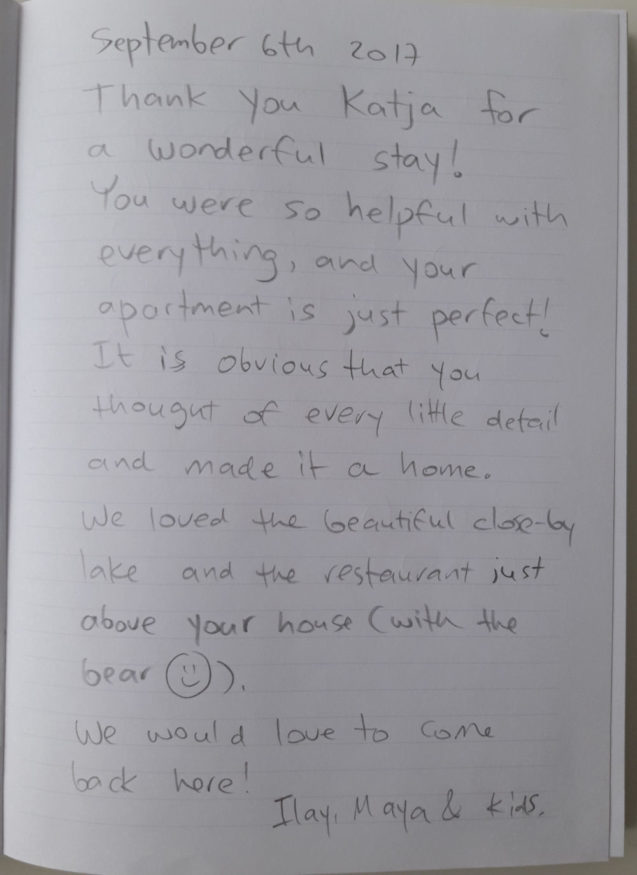 September 6th 2017
Thank you Katja for
a wonderful stay!
You were so helpful with
everything, and your
apartment is just perfect!
It is obvious that you
thougut of every little detail
and made it a home.
We loved the beautiful close-by
lake and the restaurant just
above your house (with the
bear ☺).
We would love to come
back here!
Ilay, Maya & kids.